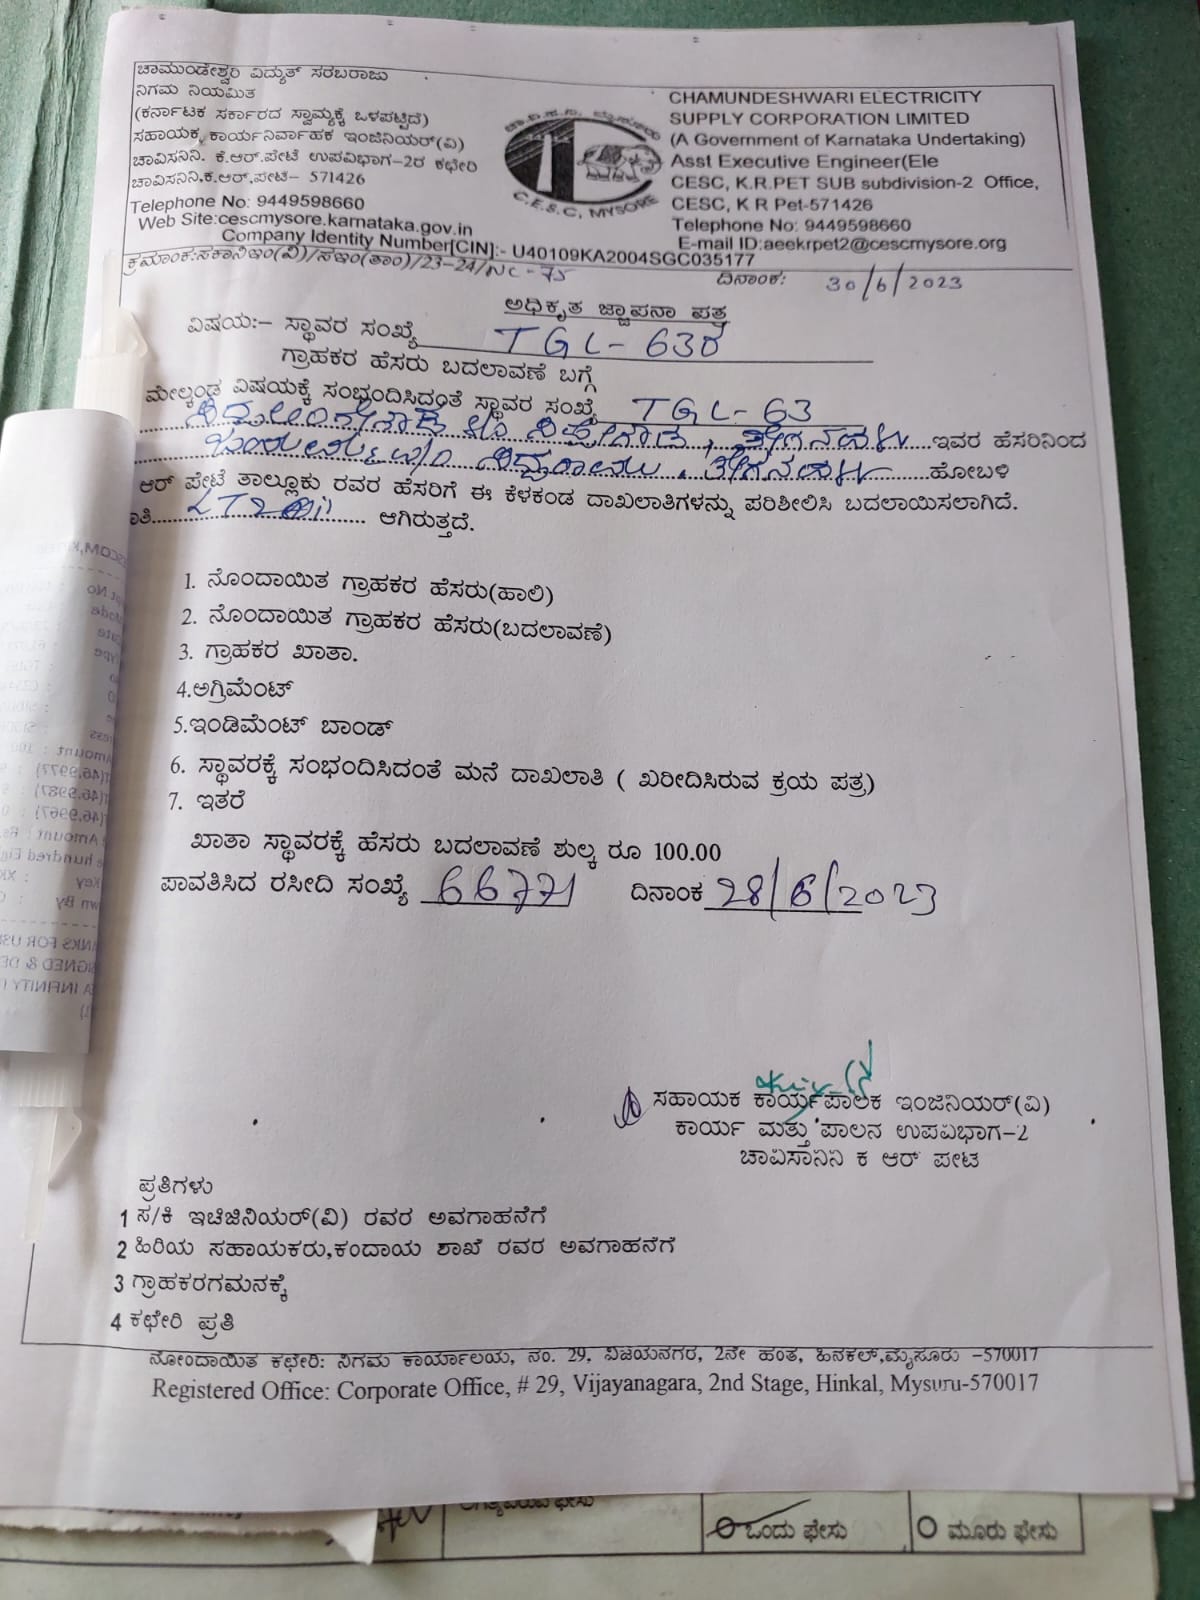 ಚಾಮುಂಡೇಶ್ವರಿ ವಿದ್ಯುತ್ ಸರಬರಾಜು
ನಿಗಮ ನಿಯಮಿತ
(ಕರ್ನಾಟಕ ಸರ್ಕಾರದ ಸ್ವಾಮ್ಯಕ್ಕೆ ಒಳಪಟ್ಟಿದೆ)
ಸಹಾಯಕ ಕಾರ್ಯನಿರ್ವಾಹಕ ಇಂಜಿನಿಯರ್(ವಿ)
ಚಾವಿಸನಿನಿ. ಕೆ.ಆರ್.ಪೇಟೆ ಉಪವಿಭಾಗ-2ರ ಕಛೇರಿ
ಚಾವಿಸನಿನಿ,ಕೆ.ಆರ್.ಪೇಟೆ- 571426
Telephone No: 9449598660
Web Site:cescmysore.karnataka.gov.in
C.E.S.C, MYSORE
CHAMUNDESHWARI ELECTRICITY
SUPPLY CORPORATION LIMITED
(A Government of Karnataka Undertaking)
Asst Executive Engineer(Ele
CESC, K.R.PET SUB subdivision-2 Office,
CESC, K R Pet-571426
Telephone No: 9449598660
E-mail ID:aeekrpet2@cescmysore.org
Company Identity Number[CIN]:- U40109KA2004SGC035177
ಕ್ರಮಾಂಕ:ಸಕಾನಿಇಂ(ವಿ)/ಸಇಂ(ತಾಂ)/23-24/NC-75 ದಿನಾಂಕ: 30/6/2023
ಅಧಿಕೃತ ಜ್ಞಾಪನಾ ಪತ್ರ
ವಿಷಯ:- ಸ್ಥಾವರ ಸಂಖ್ಯೆ TGL-63ರ
ಗ್ರಾಹಕರ ಹೆಸರು ಬದಲಾವಣೆ ಬಗ್ಗೆ
ಮೇಲ್ಕಂಡ ವಿಷಯಕ್ಕೆ ಸಂಭಂದಿಸಿದಂತೆ ಸ್ಥಾವರ ಸಂಖ್ಯೆ TGL-63
ಇವರ ಹೆಸರಿನಿಂದ
ಹೋಬಳಿ
ಆರ್ ಪೇಟೆ ತಾಲ್ಲೂಕು ರವರ ಹೆಸರಿಗೆ ಈ ಕೆಳಕಂಡ ದಾಖಲಾತಿಗಳನ್ನು ಪರಿಶೀಲಿಸಿ ಬದಲಾಯಿಸಲಾಗಿದೆ.
ಆಗಿರುತ್ತದೆ.
1. ನೊಂದಾಯಿತ ಗ್ರಾಹಕರ ಹೆಸರು(ಹಾಲಿ)
2. ನೊಂದಾಯಿತ ಗ್ರಾಹಕರ ಹೆಸರು(ಬದಲಾವಣೆ)
3. ಗ್ರಾಹಕರ ಖಾತಾ.
4.ಅಗ್ರಿಮೆಂಟ್
5.ಇಂಡಿಮೆಂಟ್ ಬಾಂಡ್
6. ಸ್ಥಾವರಕ್ಕೆ ಸಂಭಂದಿಸಿದಂತೆ ಮನೆ ದಾಖಲಾತಿ ( ಖರೀದಿಸಿರುವ ಕ್ರಯ ಪತ್ರ)
7. ಇತರೆ
ಖಾತಾ ಸ್ಥಾವರಕ್ಕೆ ಹೆಸರು ಬದಲಾವಣೆ ಶುಲ್ಕ ರೂ 100.00
ಪಾವತಿಸಿದ ರಸೀದಿ ಸಂಖ್ಯೆ 66771 ದಿನಾಂಕ 28/6/2023
ಸಹಾಯಕ ಕಾರ್ಯಪಾಲಕ ಇಂಜಿನಿಯರ್(ವಿ)
ಕಾರ್ಯ ಮತ್ತು ಪಾಲನ ಉಪವಿಭಾಗ-2
ಚಾವಿಸಾನಿನಿ ಕೆ ಆರ್ ಪೇಟೆ
ಪ್ರತಿಗಳು
1 ಸ/ಕಿ ಇಚಿಜಿನಿಯರ್(ವಿ) ರವರ ಅವಗಾಹನೆಗೆ
2 ಹಿರಿಯ ಸಹಾಯಕರು,ಕಂದಾಯ ಶಾಖೆ ರವರ ಅವಗಾಹನೆಗೆ
3 ಗ್ರಾಹಕರಗಮನಕ್ಕೆ
4 ಕಛೇರಿ ಪ್ರತಿ
ನೋಂದಾಯಿತ ಕಛೇರಿ: ನಿಗಮ ಕಾರ್ಯಾಲಯ, ನಂ. 29, ವಿಜಯನಗರ, 2ನೇ ಹಂತ, ಹಿನಕಲ್,ಮೈಸೂರು -570017
Registered Office: Corporate Office, # 29, Vijayanagara, 2nd Stage, Hinkal, Mysuru-570017
ಒಂದು ಫೇಸು
ಮೂರು ಫೇಸು